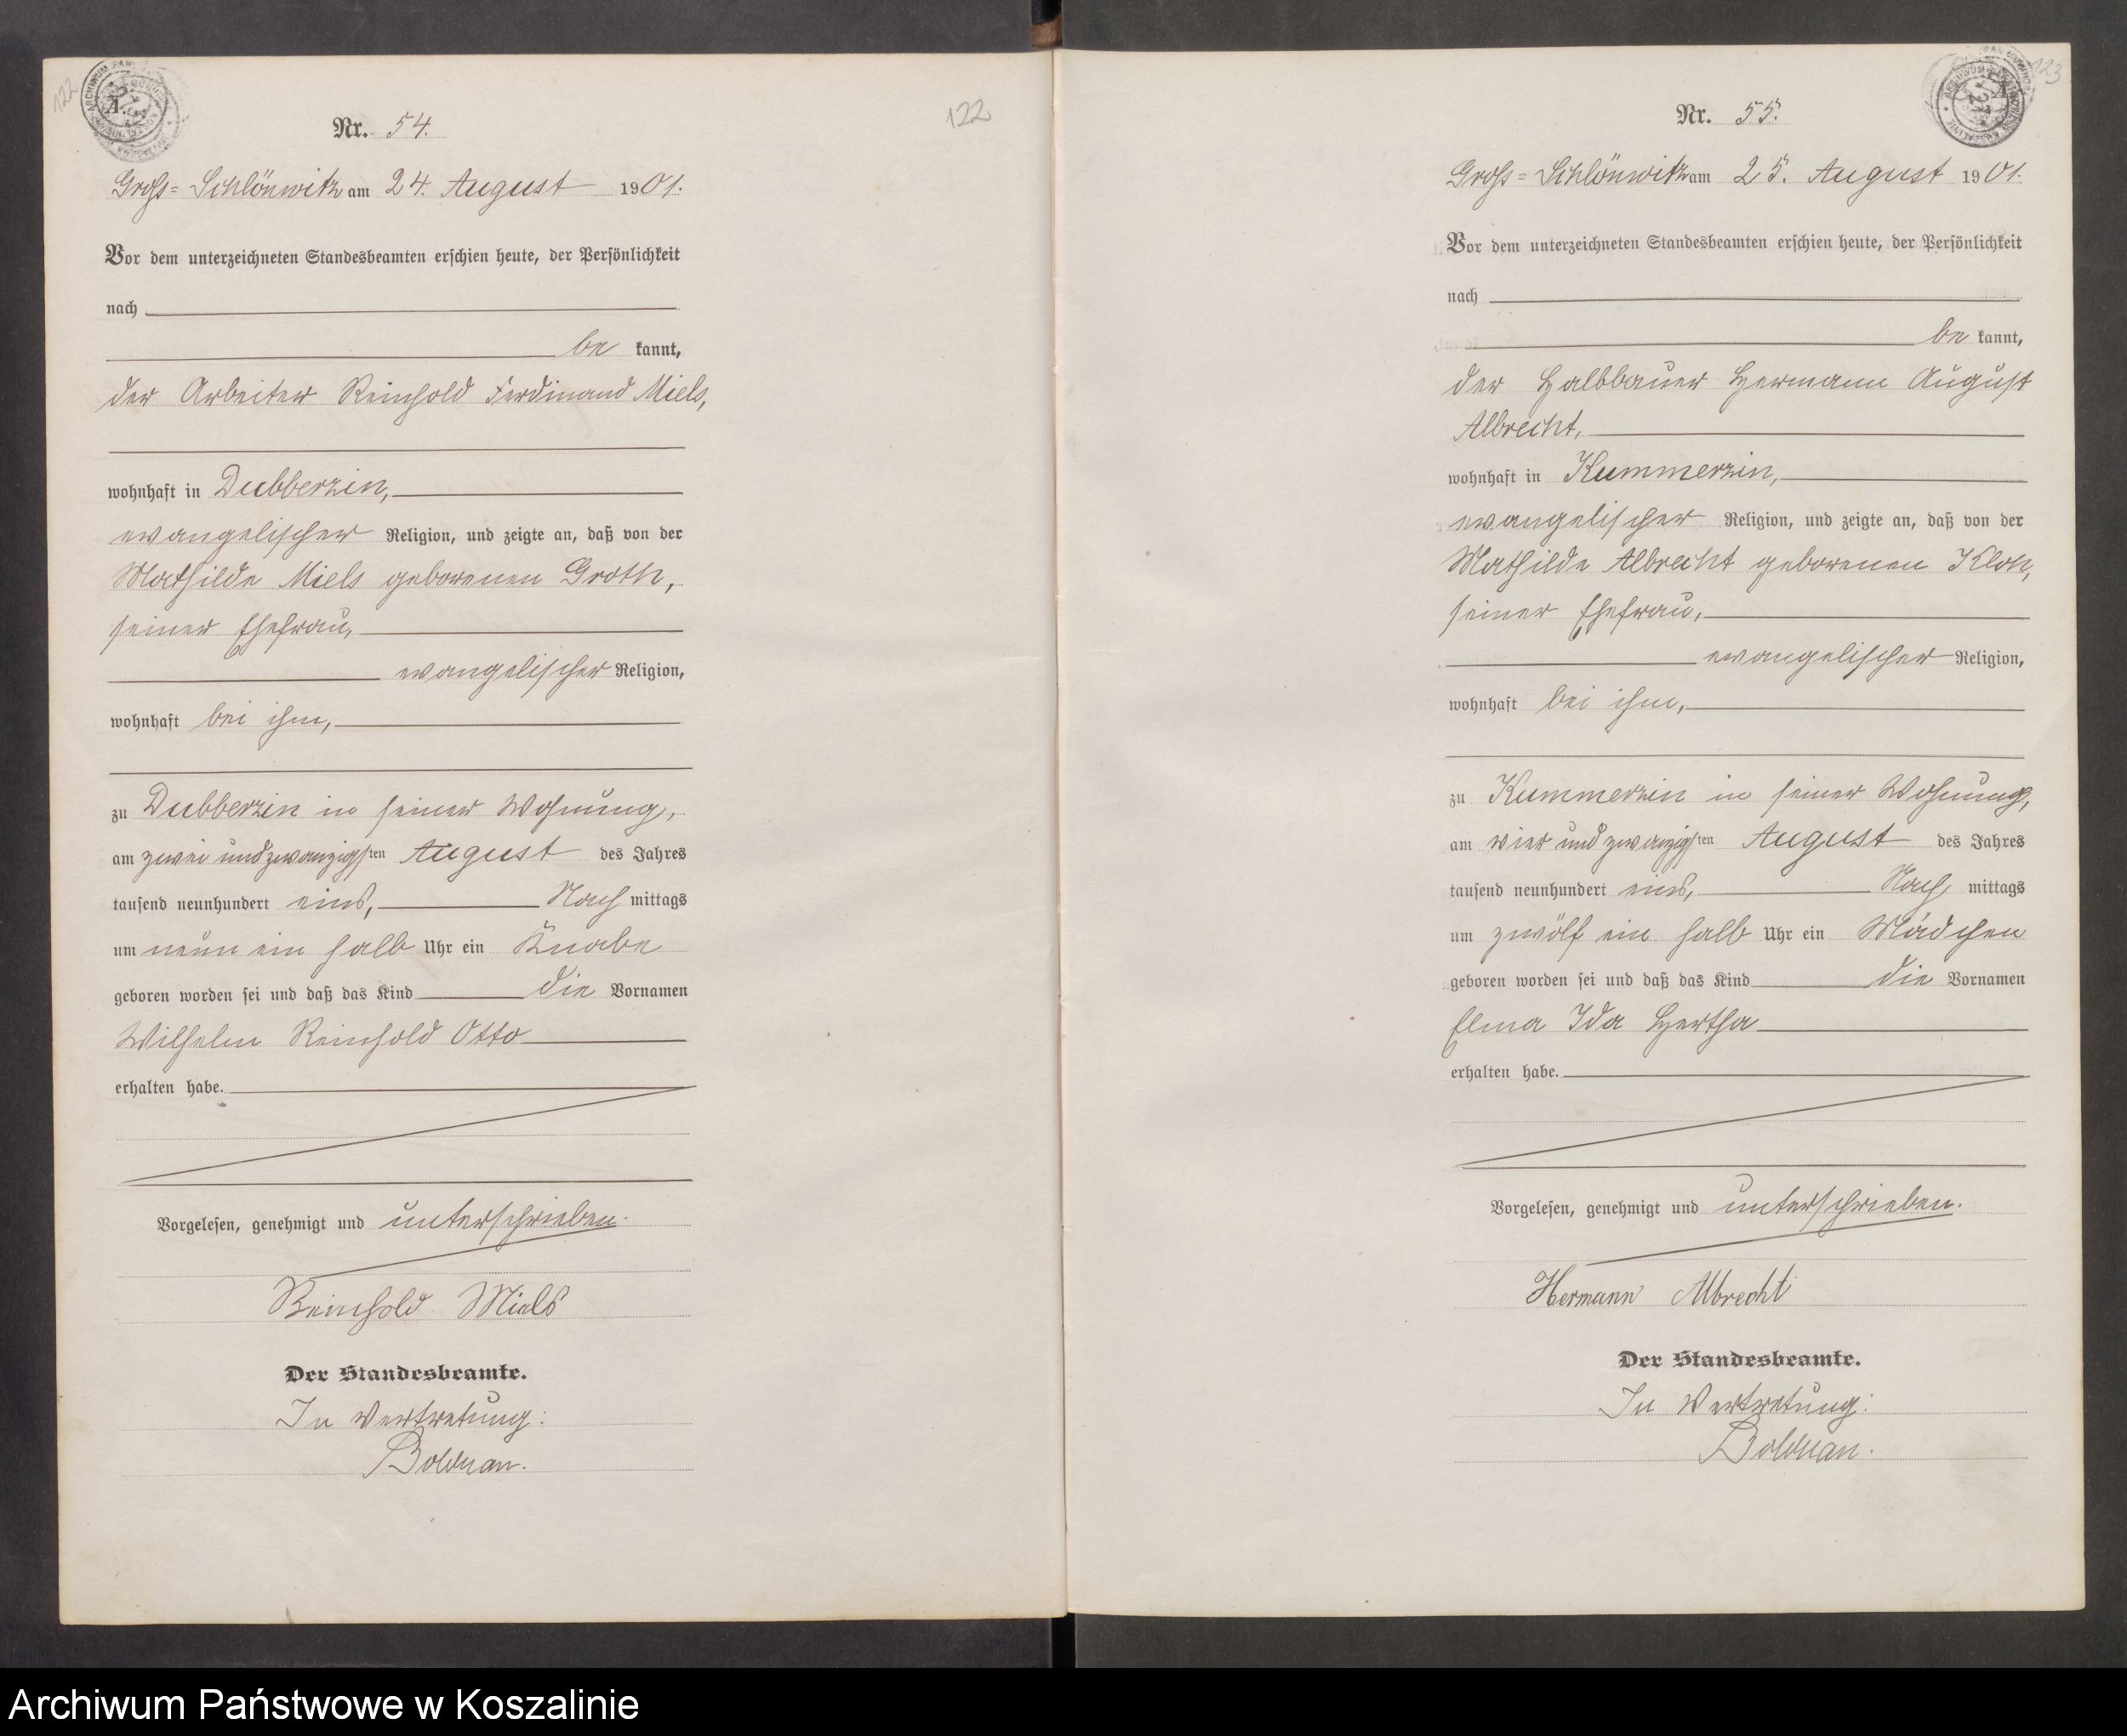 122
Nr. 54.
Groß-Schlönwitz am 24. August 1901.
Vor dem unterzeichneten Standesbeamten erschien heute, der Persönlichkeit
nach
be kannt,
der Arbeiter Reinhold Ferdinand Miels,
wohnhaft in Dubberzin,
evangelischer Religion, und zeigte an, daß von der
Mathilde Miels geborenen Groth,
seiner Ehefrau,
evangelischer Religion,
wohnhaft bei ihm,
zu Dubberzin in seiner Wohnung,
am zwei und zwanzigsten August des Jahres
tausend neunhundert eins, Nach mittags
um neun ein halb Uhr ein Knabe
geboren worden sei und daß das Kind die Vornamen
Wilhelm Reinhold Otto
erhalten habe.
Vorgelesen, genehmigt und unterschrieben.
Reinhold Miels
Der Standesbeamte.
In Vertretung:
Bolduan.
122
123
Nr. 55.
Groß-Schlönwitz am 25. August 1901.
Vor dem unterzeichneten Standesbeamten erschien heute, der Persönlichkeit
nach
be kannt,
der Halbbauer Hermann August
Albrecht,
wohnhaft in Kummerzin,
evangelischer Religion, und zeigte an, daß von der
Mathilde Albrecht geborenen
seiner Ehefrau,
evangelischer Religion,
wohnhaft bei ihm,
zu Kummerzin in seiner Wohnung,
am vier und zwanzigsten August des Jahres
tausend neunhundert eins, Nach mittags
um zwölf ein halb Uhr ein Mädchen
geboren worden sei und daß das Kind die Vornamen
Elma Ida Hertha
erhalten habe.
Vorgelesen, genehmigt und unterschrieben.
Hermann Albrecht
Der Standesbeamte.
In Vertretung:
Bolduan.
Archiwum Państwowe w Koszalinie